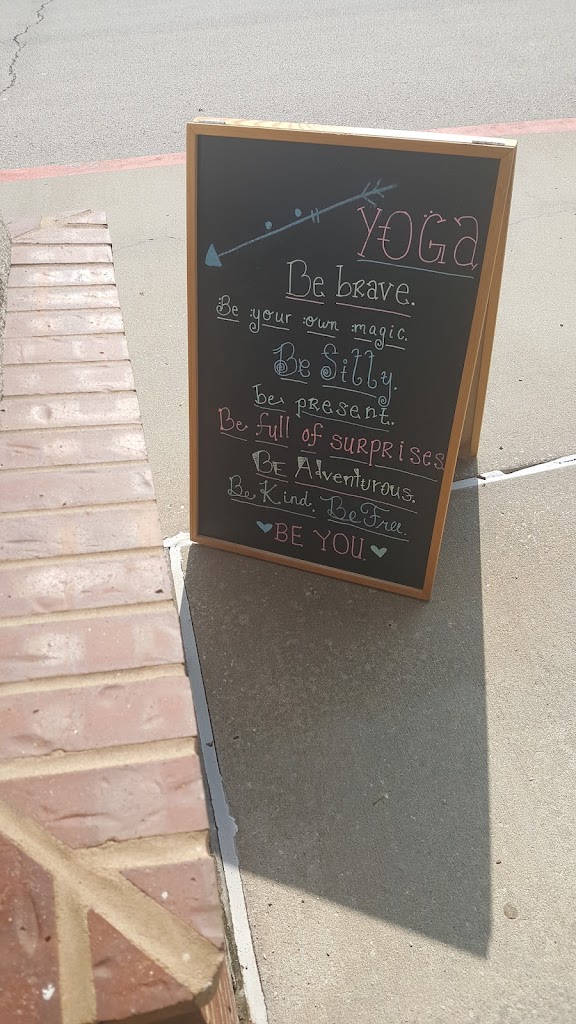 YOGa
Be brave.
Be your own magic.
Be Silly.
be present.
Be full of surprises
BE Adventurous.
Be Kind. Be Free.
BE YOU.